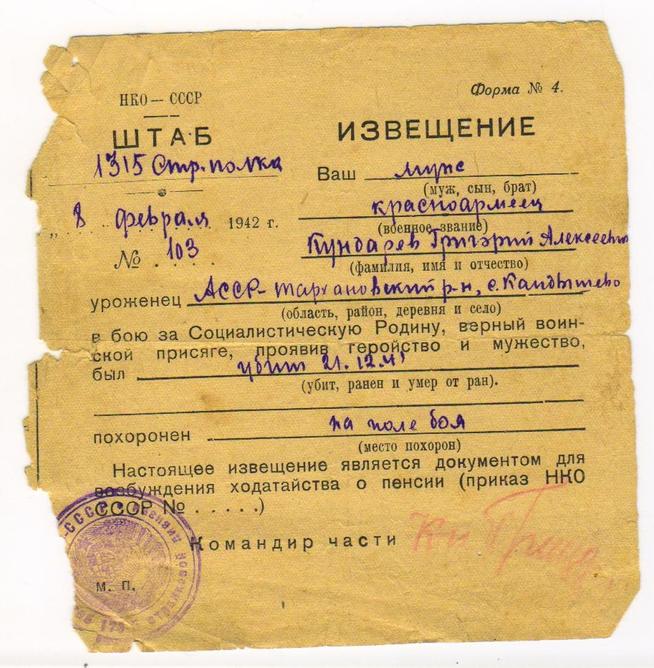 Форма № 4.
НКО — СССР
ШТАБ
1315 Стр. полка
„ 8 февраля 1942 г.
№ 103
ИЗВЕЩЕНИЕ
Ваш муж
(муж, сын, брат)
красноармеец
(военное звание)
Григорий Алексеевич
(фамилия, имя и отчество)
уроженец АССР-Тархановский р-н, с.
(область, район, деревня и село)
в бою за Социалистическую Родину, верный воин-
ской присяге, проявив геройство и мужество,
был убит 21.12.41
(убит, ранен и умер от ран).
похоронен на поле боя
(место похорон)
Настоящее извещение является документом для
возбуждения ходатайства о пенсии (приказ НКО
СССР № . . . . .)
Командир части
м. п.